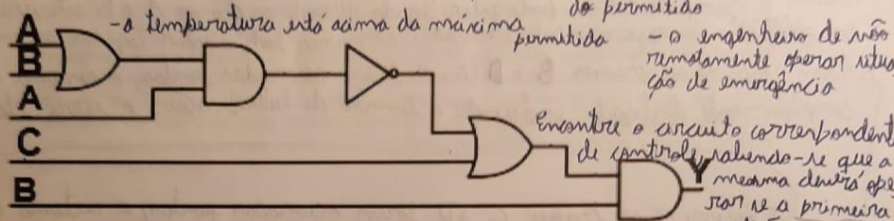 do permitido
-a temperatura está acima da máxima
permitida
- o engenheiro de
remotamente operar
ção de emergência
A
B
A
C
B
Encontre o circuito correspondent
de controle, sabendo-se que a
Y
mesma deverá ope
rar se a primeira